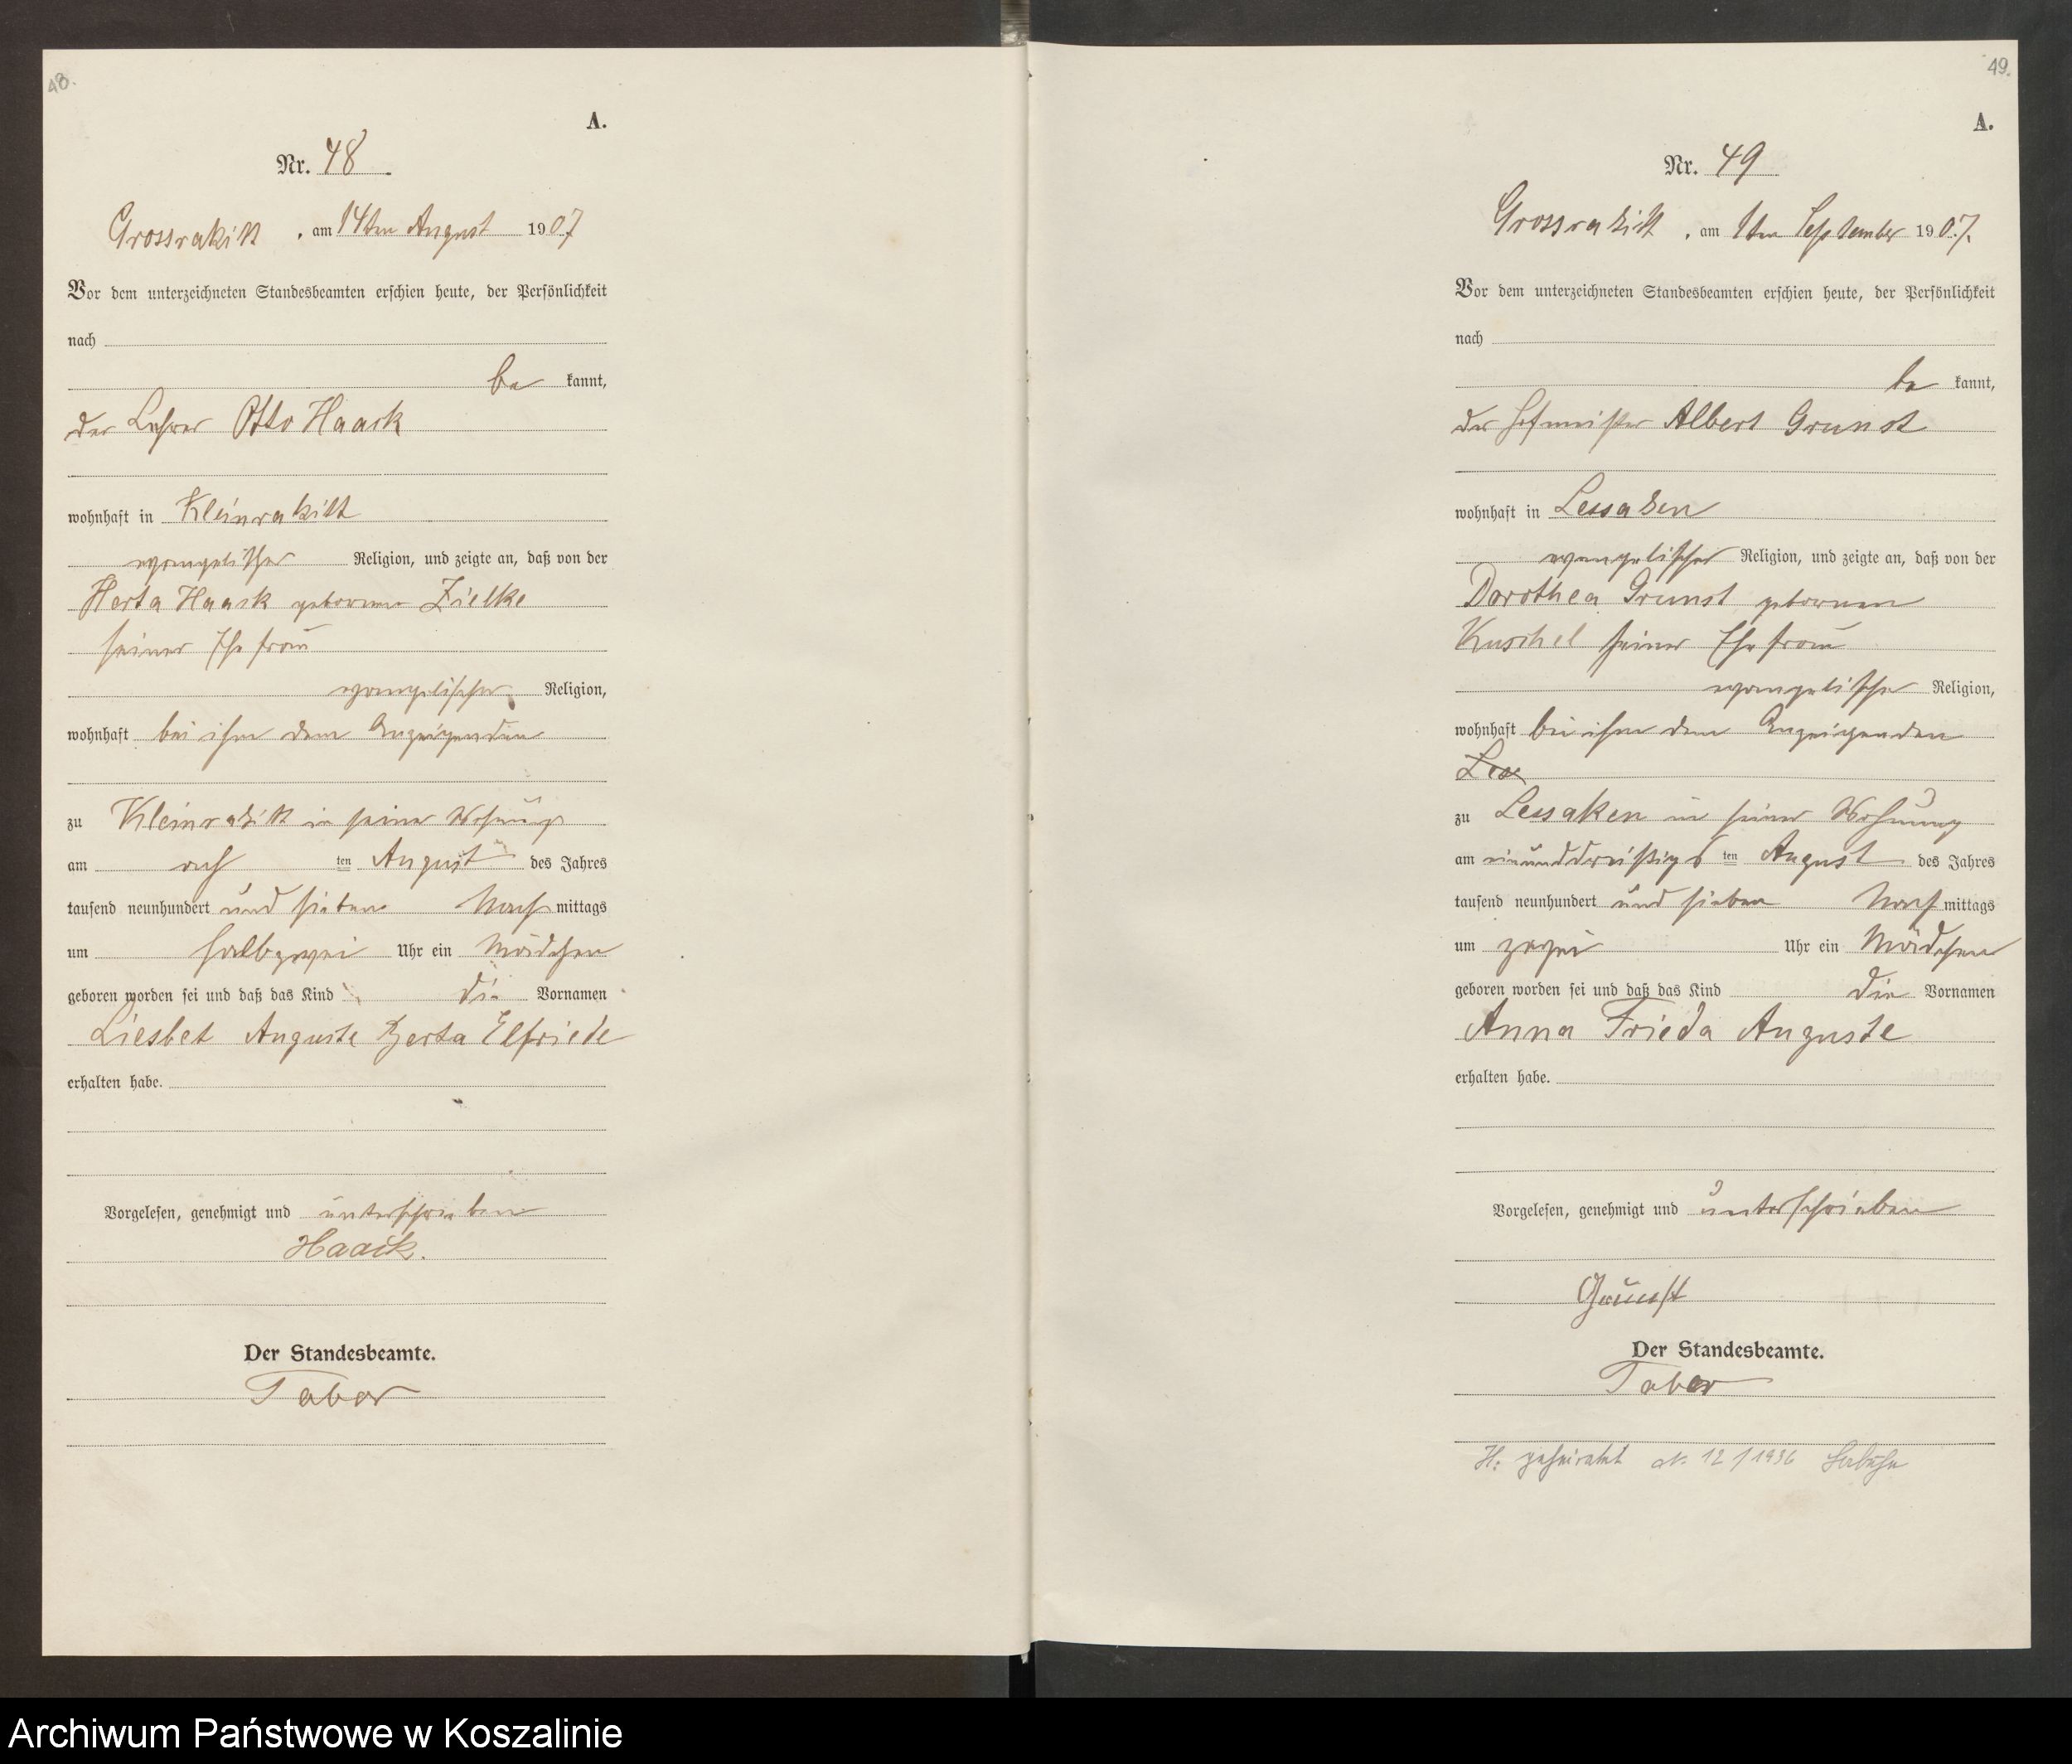 48.
A.
Nr. 48
Grossrakitt, am 14ten August 1907
Vor dem unterzeichneten Standesbeamten erschien heute, der Persönlichkeit
nach
be kannt,
der Lehrer Otto Haack
wohnhaft in Kleinrakitt
evangelischer Religion, und zeigte an, daß von der
Herta Haack geborenen Zielke
seiner Ehefrau
evangelischer Religion,
wohnhaft bei ihm dem Anzeigenden
zu Kleinrakitt in seiner Wohnung
am ach ten August des Jahres
tausend neunhundert und sieben Nach mittags
um halbzwei Uhr ein Mädchen
geboren worden sei und daß das Kind die Vornamen
Liesbet Auguste Berta Elfriede
erhalten habe.
Vorgelesen, genehmigt und unterschrieben
Haack.
Der Standesbeamte.
Tabor
49.
A.
Nr. 49
Grossrakitt, am 1ten September 1907.
Vor dem unterzeichneten Standesbeamten erschien heute, der Persönlichkeit
nach
be kannt,
der Hofmeister Albert Grunst
wohnhaft in Lessaken
evangelischer Religion, und zeigte an, daß von der
Dorothea Grunst geborenen
Kuschel seiner Ehefrau
evangelischer Religion,
wohnhaft bei ihm dem Anzeigenden
Les
zu Lessaken in seiner Wohnung
am einunddreißigs ten August des Jahres
tausend neunhundert und sieben Nach mittags
um zwei Uhr ein Mädchen
geboren worden sei und daß das Kind die Vornamen
Anna Frieda Auguste
erhalten habe.
Vorgelesen, genehmigt und unterschrieben
Grunst
Der Standesbeamte.
Tabor
H: geheiratet 12/1936
Archiwum Państwowe w Koszalinie